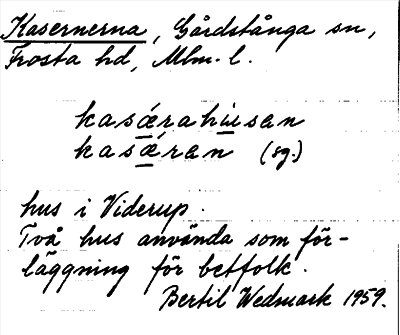 Kasernerna, Gårdstånga sn,
Frosta hd, Mlm. l.
kasǽrahusan
kasǽran (sg.)
hus i Viderup.
Två hus använda som för-
läggning för betfolk.
Bertil Wedmark 1959.